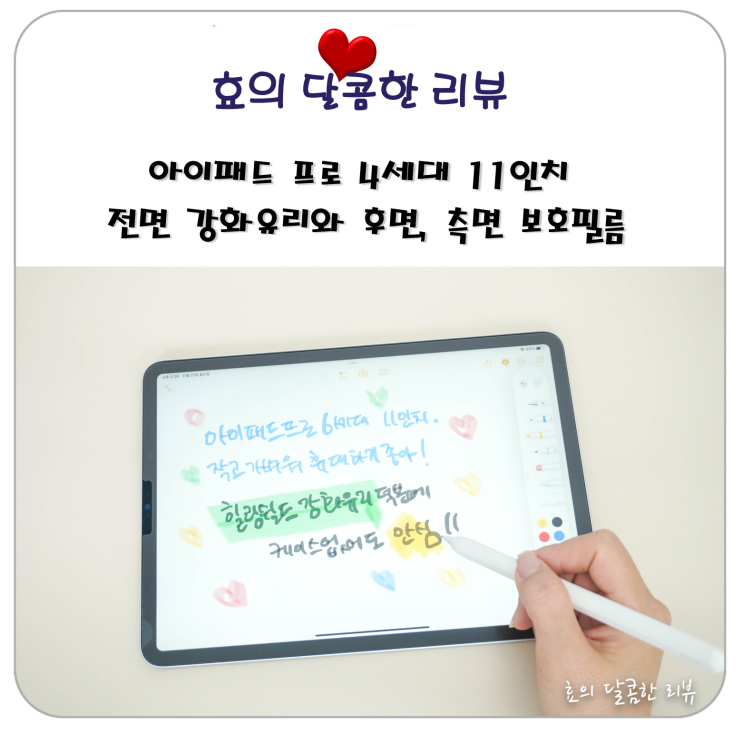 효의 달콤한 리뷰
아이패드 프로 4세대 11인치
전면 강화유리와 후면, 측면 보호필름
아이패드프로 6세대 11인치.
작고 가벼워 휴대하기 좋아!
힐링쉴드 강화유리 덕분에
케이스없어도 안심!!
효의 달콤한 리뷰